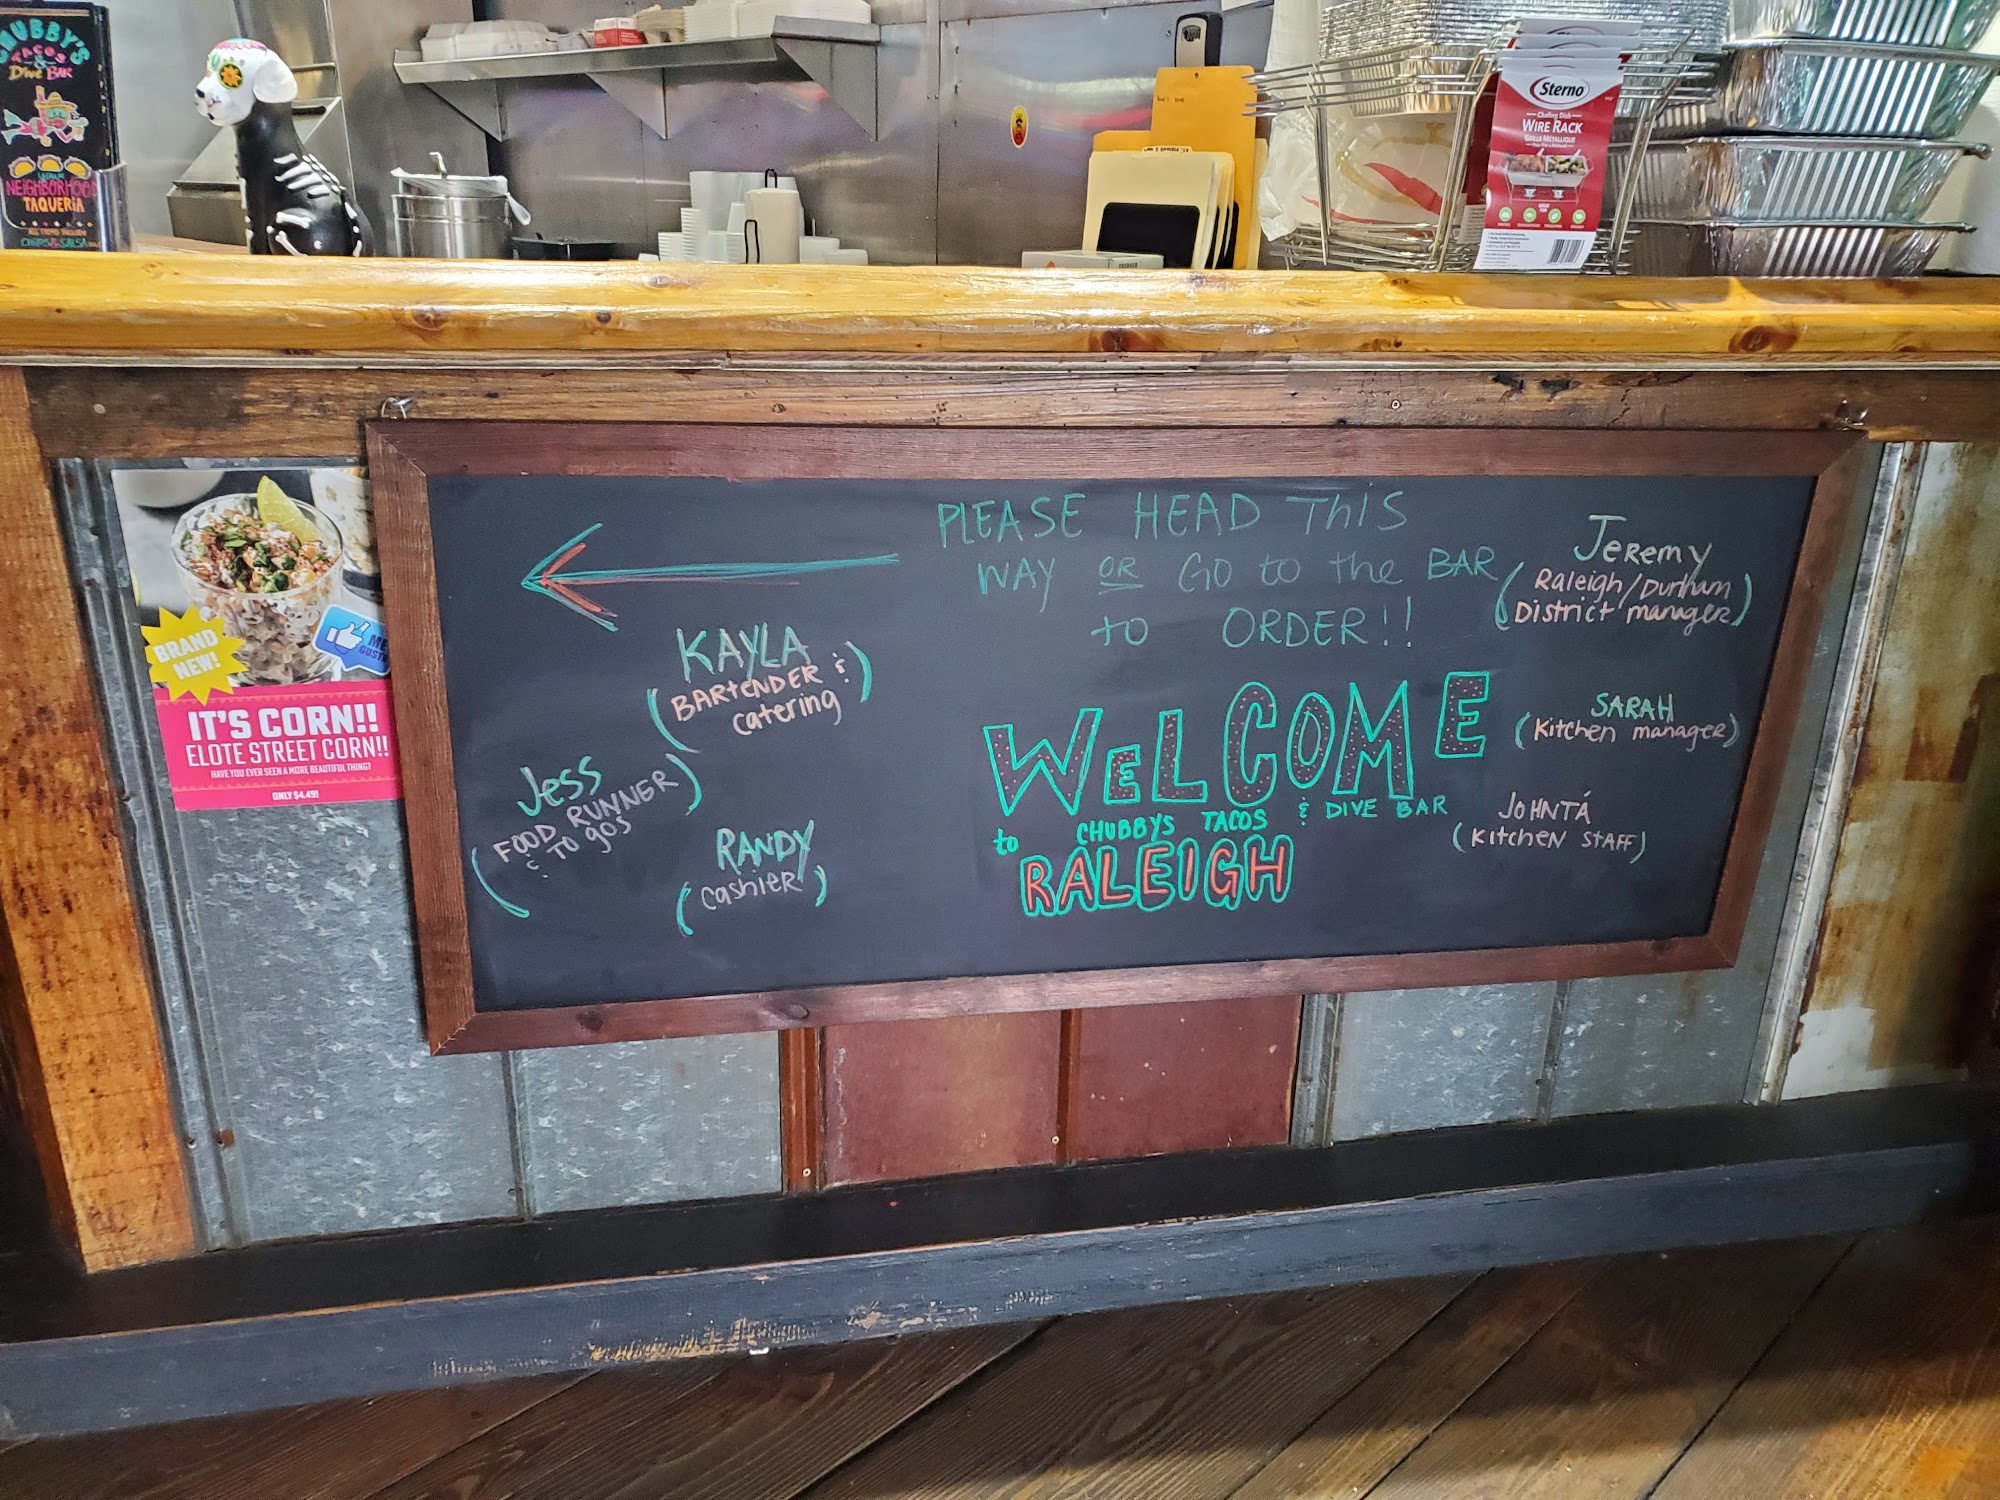 CHUBBY'S
TACOS
&
DIVE BAR
YOUR
NEIGHBORHOOD
TAQUERIA
CHIPS & SALSA
Sterno
Chafing Dish
WIRE RACK
GRILLE MÉTALLIQUE
PLEASE HEAD THIS
WAY OR GO to the BAR
to ORDER!!
JEREMY
(Raleigh/Durham
District manager)
KAYLA
(BARTENDER &
catering)
SARAH
(Kitchen manager)
WELCOME
to CHUBBYS TACOS & DIVE BAR
RALEIGH
Jess
(FOOD RUNNER
& TO gos)
RANDY
(cashier)
JOHNTÁ
(KitcHEN STAFF)
BRAND
NEW!
ME
GUSTA
IT'S CORN!!
ELOTE STREET CORN!!
HAVE YOU EVER SEEN A MORE BEAUTIFUL THING?
ONLY $4.49!